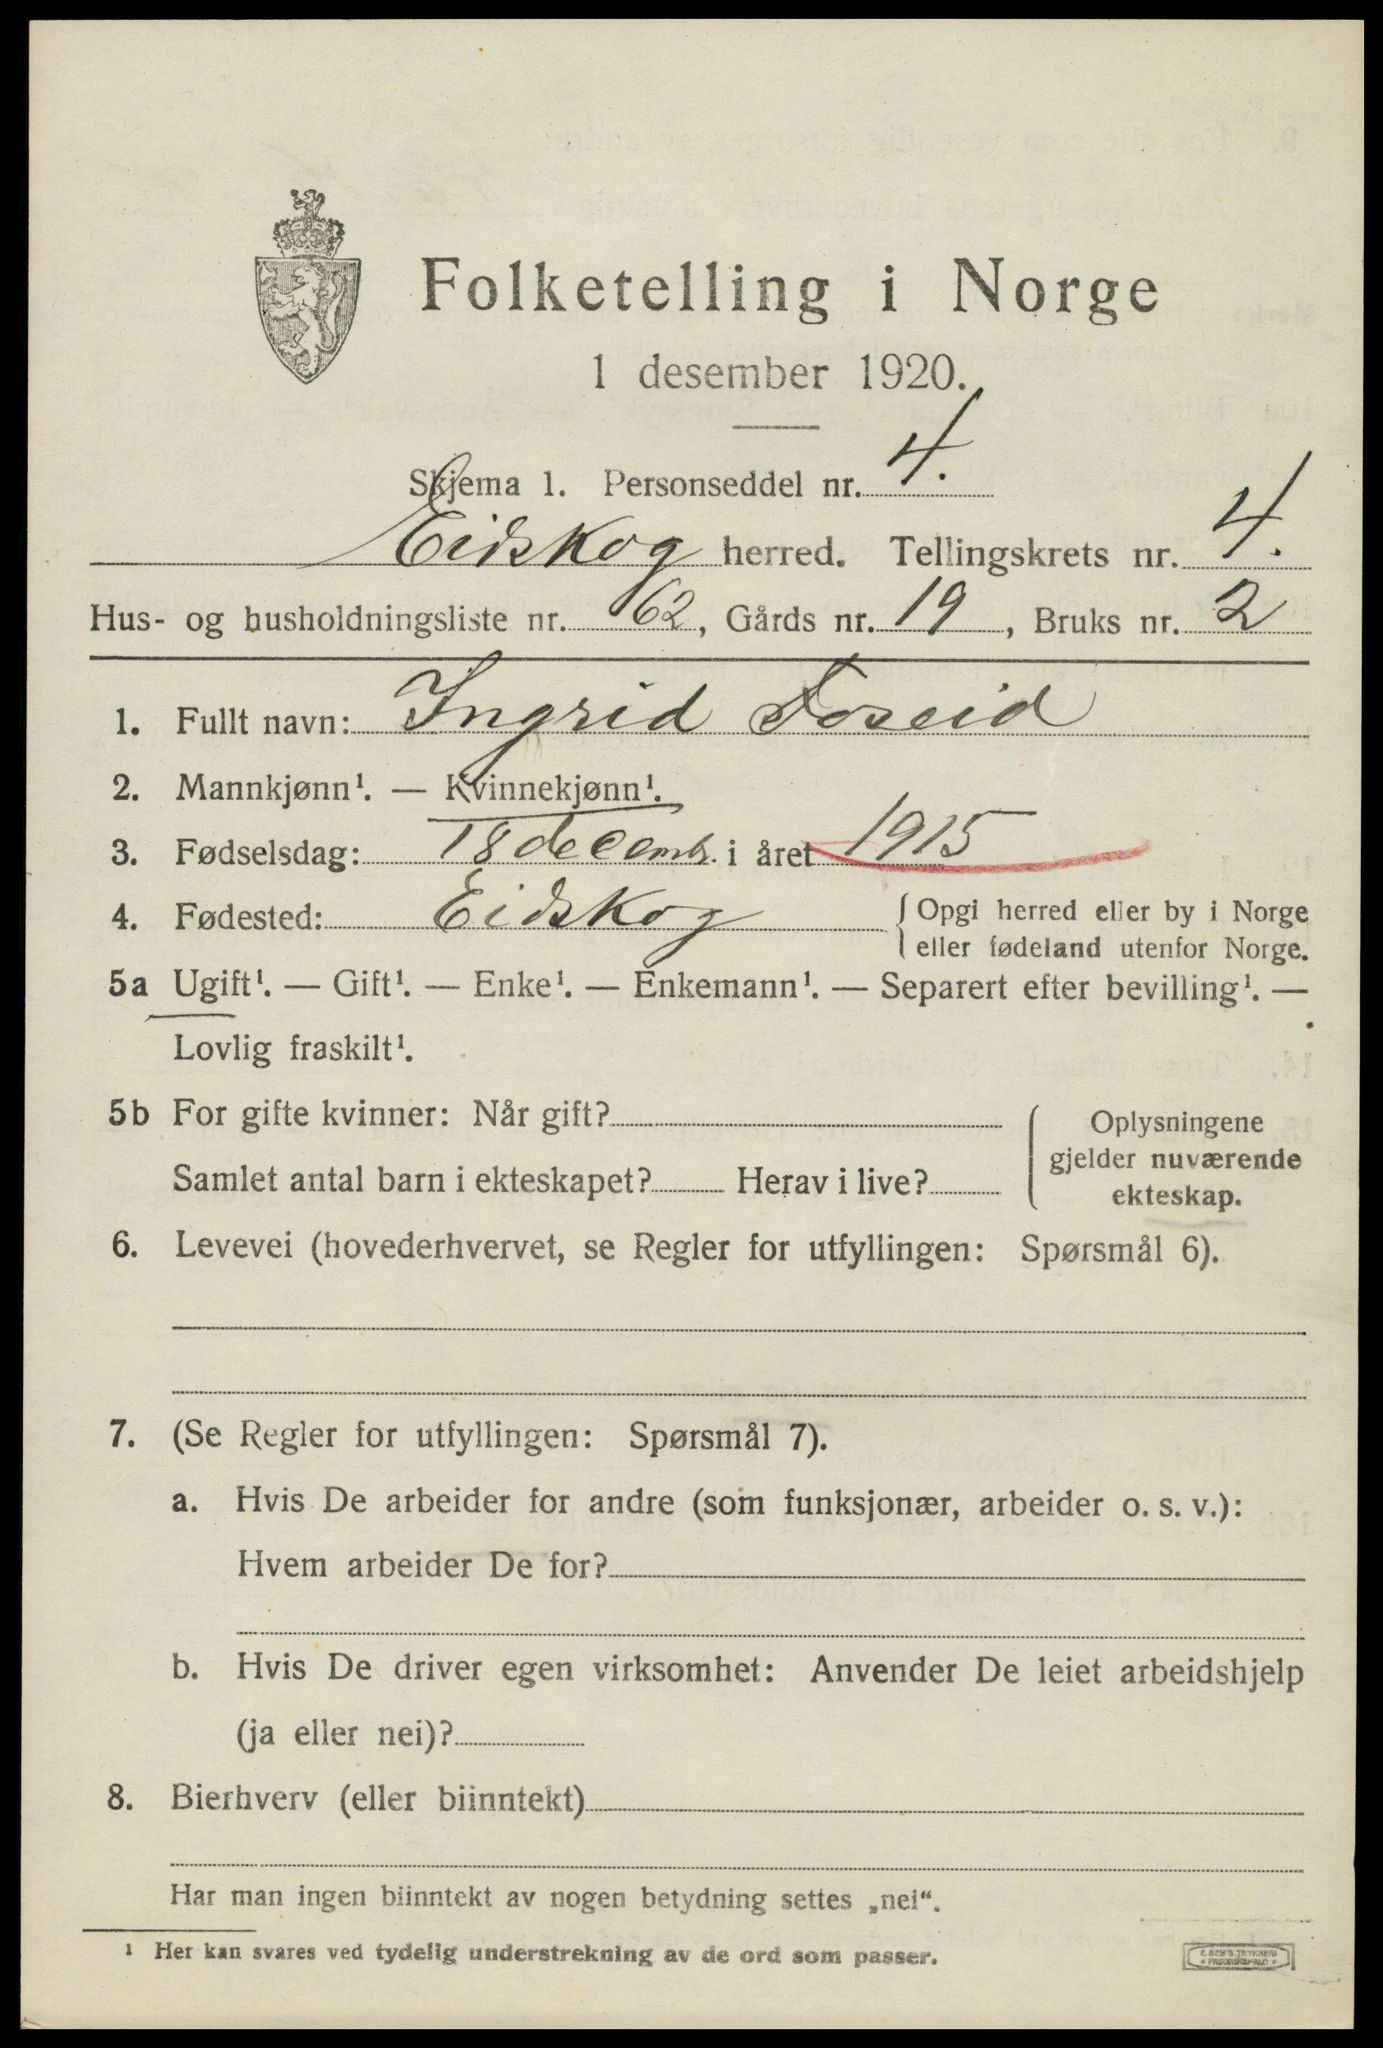 Folketelling i Norge
1 desember 1920.
Skjema 1. Personseddel nr. 4.
Eidskog herred. Tellingskrets nr. 4.
Hus- og husholdningsliste nr. 62, Gårds nr. 19, Bruks nr. 2
1. Fullt navn: Ingrid Foseid
2. Mannkjønn¹. — Kvinnekjønn¹.
3. Fødselsdag: 18 decembr. i året 1915
4. Fødested: Eidskog { Opgi herred eller by i Norge
eller fødeland utenfor Norge.
5a Ugift¹. — Gift¹. — Enke¹. — Enkemann¹. — Separert efter bevilling¹. —
Lovlig fraskilt¹.
5b For gifte kvinner: Når gift?
Samlet antal barn i ekteskapet? Herav i live?
Oplysningene
gjelder nuværende
ekteskap.
6. Levevei (hovederhvervet, se Regler for utfyllingen: Spørsmål 6).
7. (Se Regler for utfyllingen: Spørsmål 7).
a. Hvis De arbeider for andre (som funksjonær, arbeider o. s. v.):
Hvem arbeider De for?
b. Hvis De driver egen virksomhet: Anvender De leiet arbeidshjelp
(ja eller nei)?
8. Bierhverv (eller biinntekt)
Har man ingen biinntekt av nogen betydning settes „nei“.
¹ Her kan svares ved tydelig understrekning av de ord som passer.